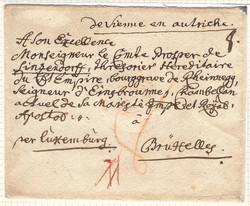 de vienne en autriche.
A Son Excellence
Monseigneur le Comte Prosper de
Sinzendorff, Thresorier Hereditaire
du St Empire, Bourggrave de Rheinnegg,
Seigneur d'Ernsbrounne, Chambellan
actuel de Sa Majesté Imp: et Royale
Apostol:
à
per Luxembürg. Brüxelles.